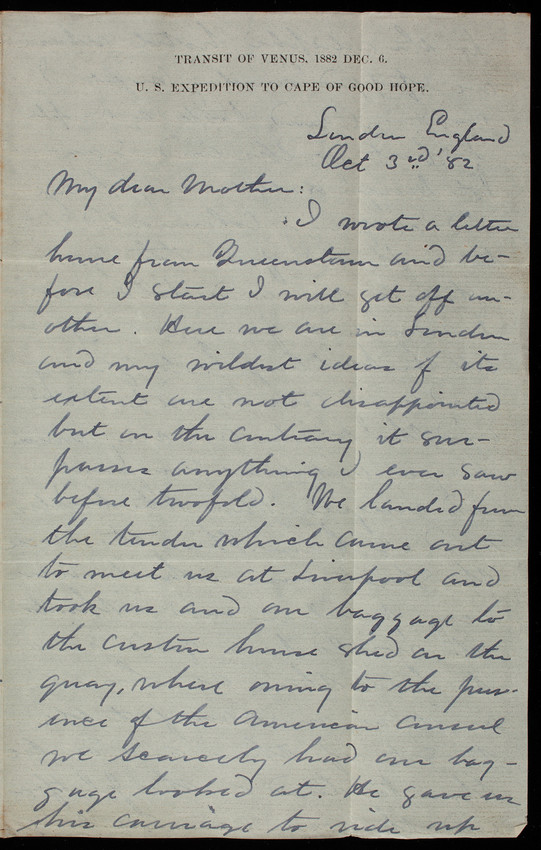 TRANSIT OF VENUS. 1882 DEC. 6.
U. S. EXPEDITION TO CAPE OF GOOD HOPE.
London England
Oct 3rd '82
My dear Mother:
I wrote a letter
home from Queenstown and be-
fore I start I will get off an-
other. Here we are in London
and my wildest ideas of its
extent are not disappointed
but on the contrary it sur-
passes anything I ever saw
before twofold. We landed from
the tender which came out
to meet us at Liverpool and
took us and our baggage to
the custom house shed on the
quay, where owing to the pres-
ence of the American Consul
we scarcely had our bag-
gage looked at. He gave us
his carriage to ride up